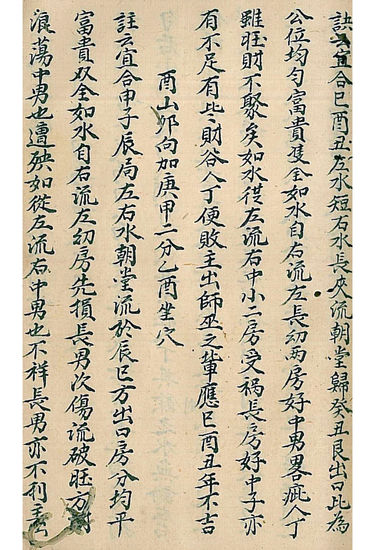 訣云宜合巳酉丑左水短右水長夾流朝堂歸癸丑艮出口此為
公位均勻富貴雙全如水自右流左長初兩房好中男畧疵人丁
雖旺財不聚矣如水從左流右中小二房受禍長房好中子亦
有不足有此財谷人丁便敗主出師巫之輩應巳酉丑年不吉
酉山卯向加庚甲二分乙酉坐穴
註云宜合申子辰局左右水朝堂流於辰巳方出口房分均平
富貴双全如水自右流左初房先損長男次傷流破旺方
浪蕩中男也遭殃如從左流右中男也不祥長男亦不利